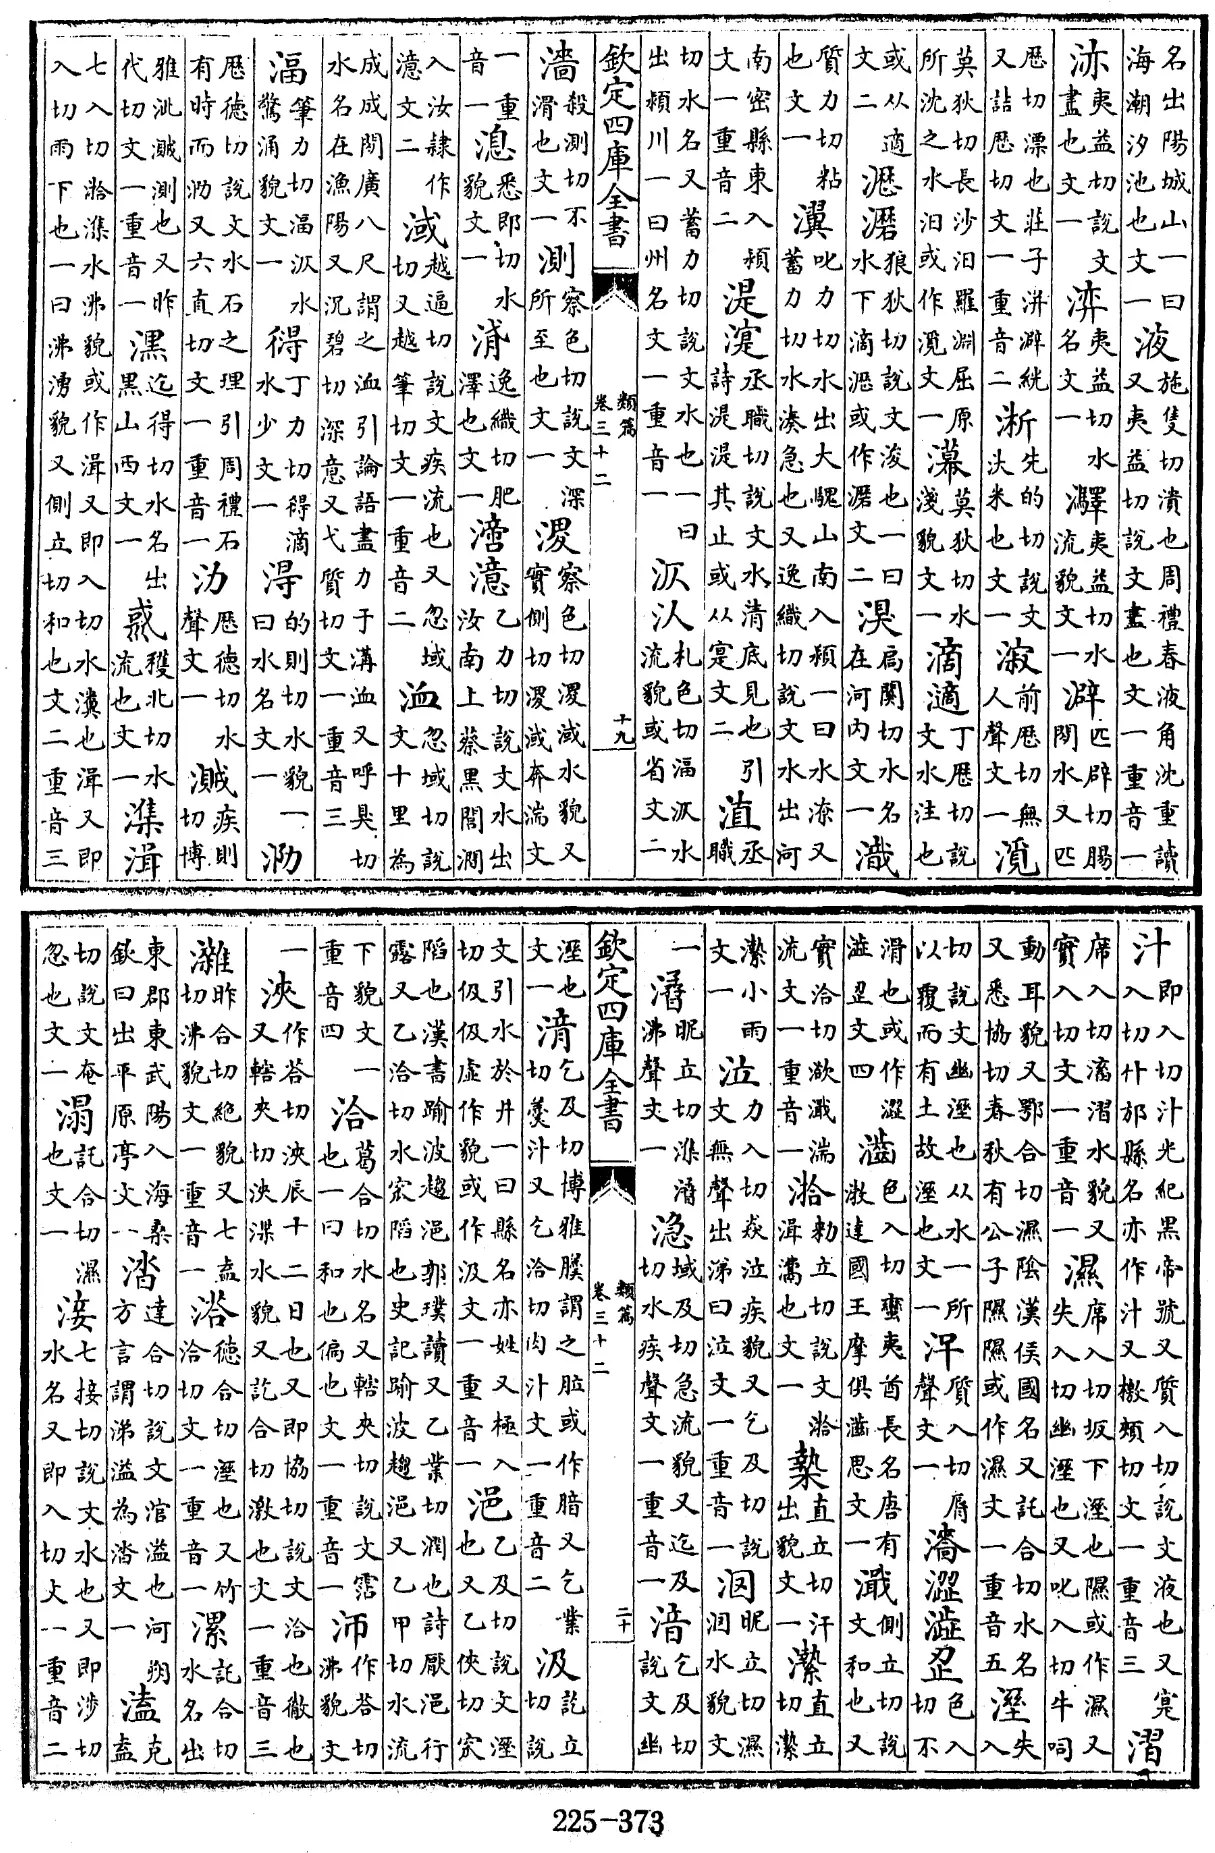 名出陽城山一曰海潮汐池也文一 液 施隻切潰也周禮春液角沈重讀又夷益切說文盡也文一重音一
洂 夷益切說文盡也文一 湙 夷益切水名文一 夷益切水流貌文一 澼 匹辟切腸間水又匹
歷切漂也莊子洴澼絖又詰歷切文一重音二 淅 先的切說文汏米也文一 漃 前歷切無人聲文一 漞
莫狄切長沙汨羅淵屈原所沈之水汨或作漞文一 莫狄切水淺貌文一 滴 丁歷切說文水注也
或从適文二 瀝 狼狄切說文浚也一曰水下滴瀝或作文二 湨 扃闃切水名在河內文一
質力切粘也文一 瀷 叱力切水出大騩山南入潁一曰水潦又蓄力切水湊急也又逸織切說文水出河
南密縣東入潁文一重音二 湜 丞職切說文水清底見也引詩湜湜其止或从寔文二 淔 丞職
切水名又蓄力切說文水也一曰出潁川一曰州名文一重音一 札色切湢水流貌或省文二
欽定四庫全書 類篇 卷三十二 十九
濇 殺測切不滑也文一 測 察色切說文深所至也文一 溭 察色切溭淢水貌又實側切溭淢奔湍文
一重音一 悉即切水貌文一 逸織切肥澤也文一 澺 乙力切說文水出汝南上蔡黑閭澗
入汝隸作澺文二 淢 越逼切說文疾流也又忽域切又越筆切文一重音二 洫 忽域切說文十里為
成成間廣八尺謂之洫引論語盡力于溝洫又呼臭切水名在漁陽又沉碧切深意又弋質切文一重音三
湢 筆力切湢水驚涌貌文一 丁力切滴水少文一 淂 的則切水貌一曰水名文一 泐
歷德切說文水石之理引周禮石有時而泐又六直切文一重音一 氻 歷德切水聲文一 疾則切博
雅泚測也又昨代切文一重音一 潶 迄得切水名出黑山西文一 穫北切水流也文一 潗湒
七入切湁潗水沸貌或作湒又即入切水瀵也湒又即入切雨下也一曰沸湧貌又側立切和也文二重音三
汁 即入切汁光紀黑帝號又質入切說文液也又寔入切什邡縣名亦作汁又檄頰切文一重音三 漝
席入切漓漝水貌又實入切文一重音一 濕 席入切坂下溼也隰或作濕又失入切幽溼也又叱入切牛呞
動耳貌又鄂合切濕陰漢侯國名又託合切水名又悉協切春秋有公子隰隰或作濕文一重音五 溼 失入
切說文幽溼也从水一所以覆而有土故溼也文一 質入切脣聲文一 澀澁 色入切不
滑也或作澀澁文四 色入切蠻夷酋長名唐有淤達國王摩俱思文一 濈 側立切說文和也又
實洽切㵎濈湍流文一重音一 湁 勑立切說文湁湒鬻也文一 直立切汗出貌文一 直立切
小雨文一 泣 力入切猋泣疾貌又乞及切說文無聲出涕曰泣文一重音一 昵立切濕水貌文
一 昵立切潗沸聲文一 域及切急流貌又迄及切水疾聲文一重音一 湆 乞及切說文幽
欽定四庫全書 類篇 卷三十二 二十
溼也文一 乞及切博雅膗謂之䏠或作腤又乞業切羹汁又乞洽切肉汁文一重音二 汲 訖立切說
文引水於井一曰縣名亦姓又極入切伋伋虛作貌或作汲文一重音一 浥 乙及切說文溼也又乙俠切㳄
陷也漢書踰波趨浥郭璞讀又乙業切潤也詩厭浥行露又乙洽切水㳄陷也史記踰波趨浥又乙甲切水流
下貌文一重音四 洽 葛合切水名又轄夾切說文霑也一曰和也徧也文一重音一 沞 作荅切沸貌文
一 浹 作荅切浹辰十二日也又即協切說文洽也徹也又轄夾切浹渫水貌又訖合切潋也文一重音三
昨合切絕貌又七盍切沸貌文一重音一 㴉 德合切溼也又竹洽切文一重音一 漯 託合切水名出
東郡東武陽入海桑欽曰出平原亭文一 涾 達合切說文涫溢也河朔方言謂涕溢為涾文一 溘 克盍
切說文奄忽也文一 溻 託合切濕也文一 淁 七接切說文水也又即涉切水名又即入切文一重音二
225-373